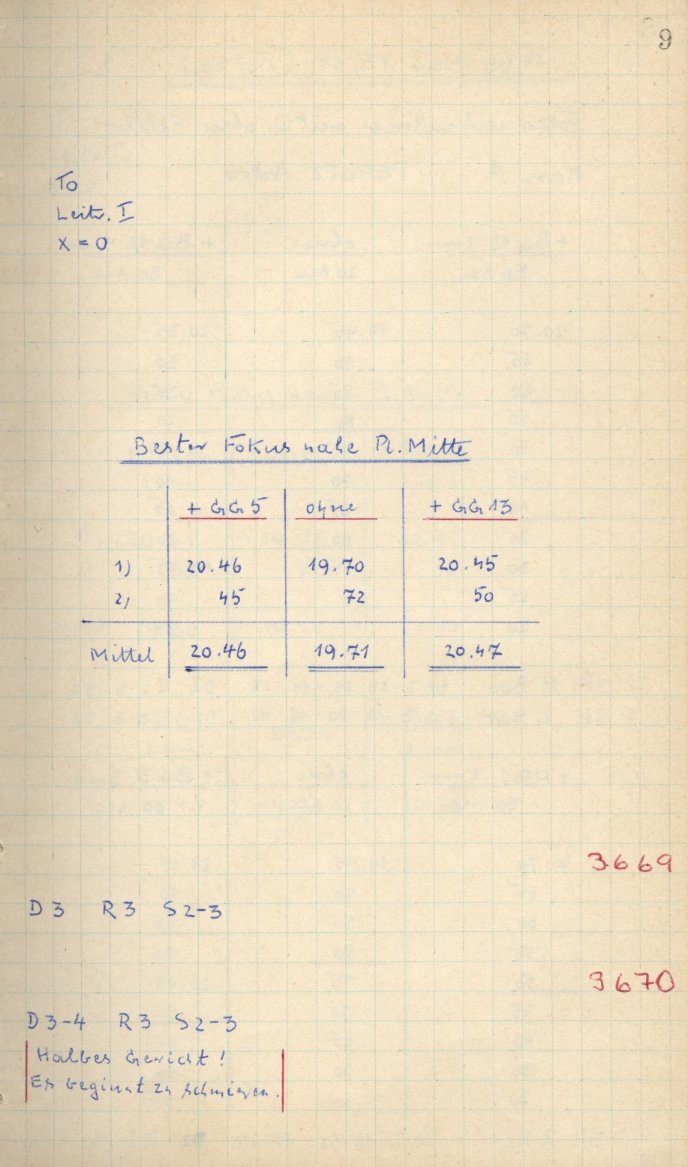 9
To
Leitr. I
X = 0
Bester Fokus nahe Pl. Mitte
+ GG 5 ohne + GG 13
1) 20.46 19.70 20.45
2) 45 72 50
Mittel 20.46 19.71 20.47
3669
D3 R3 S2-3
3670
D3-4 R3 S2-3
Halbes Gewicht!
Es beginnt zu schmieren.